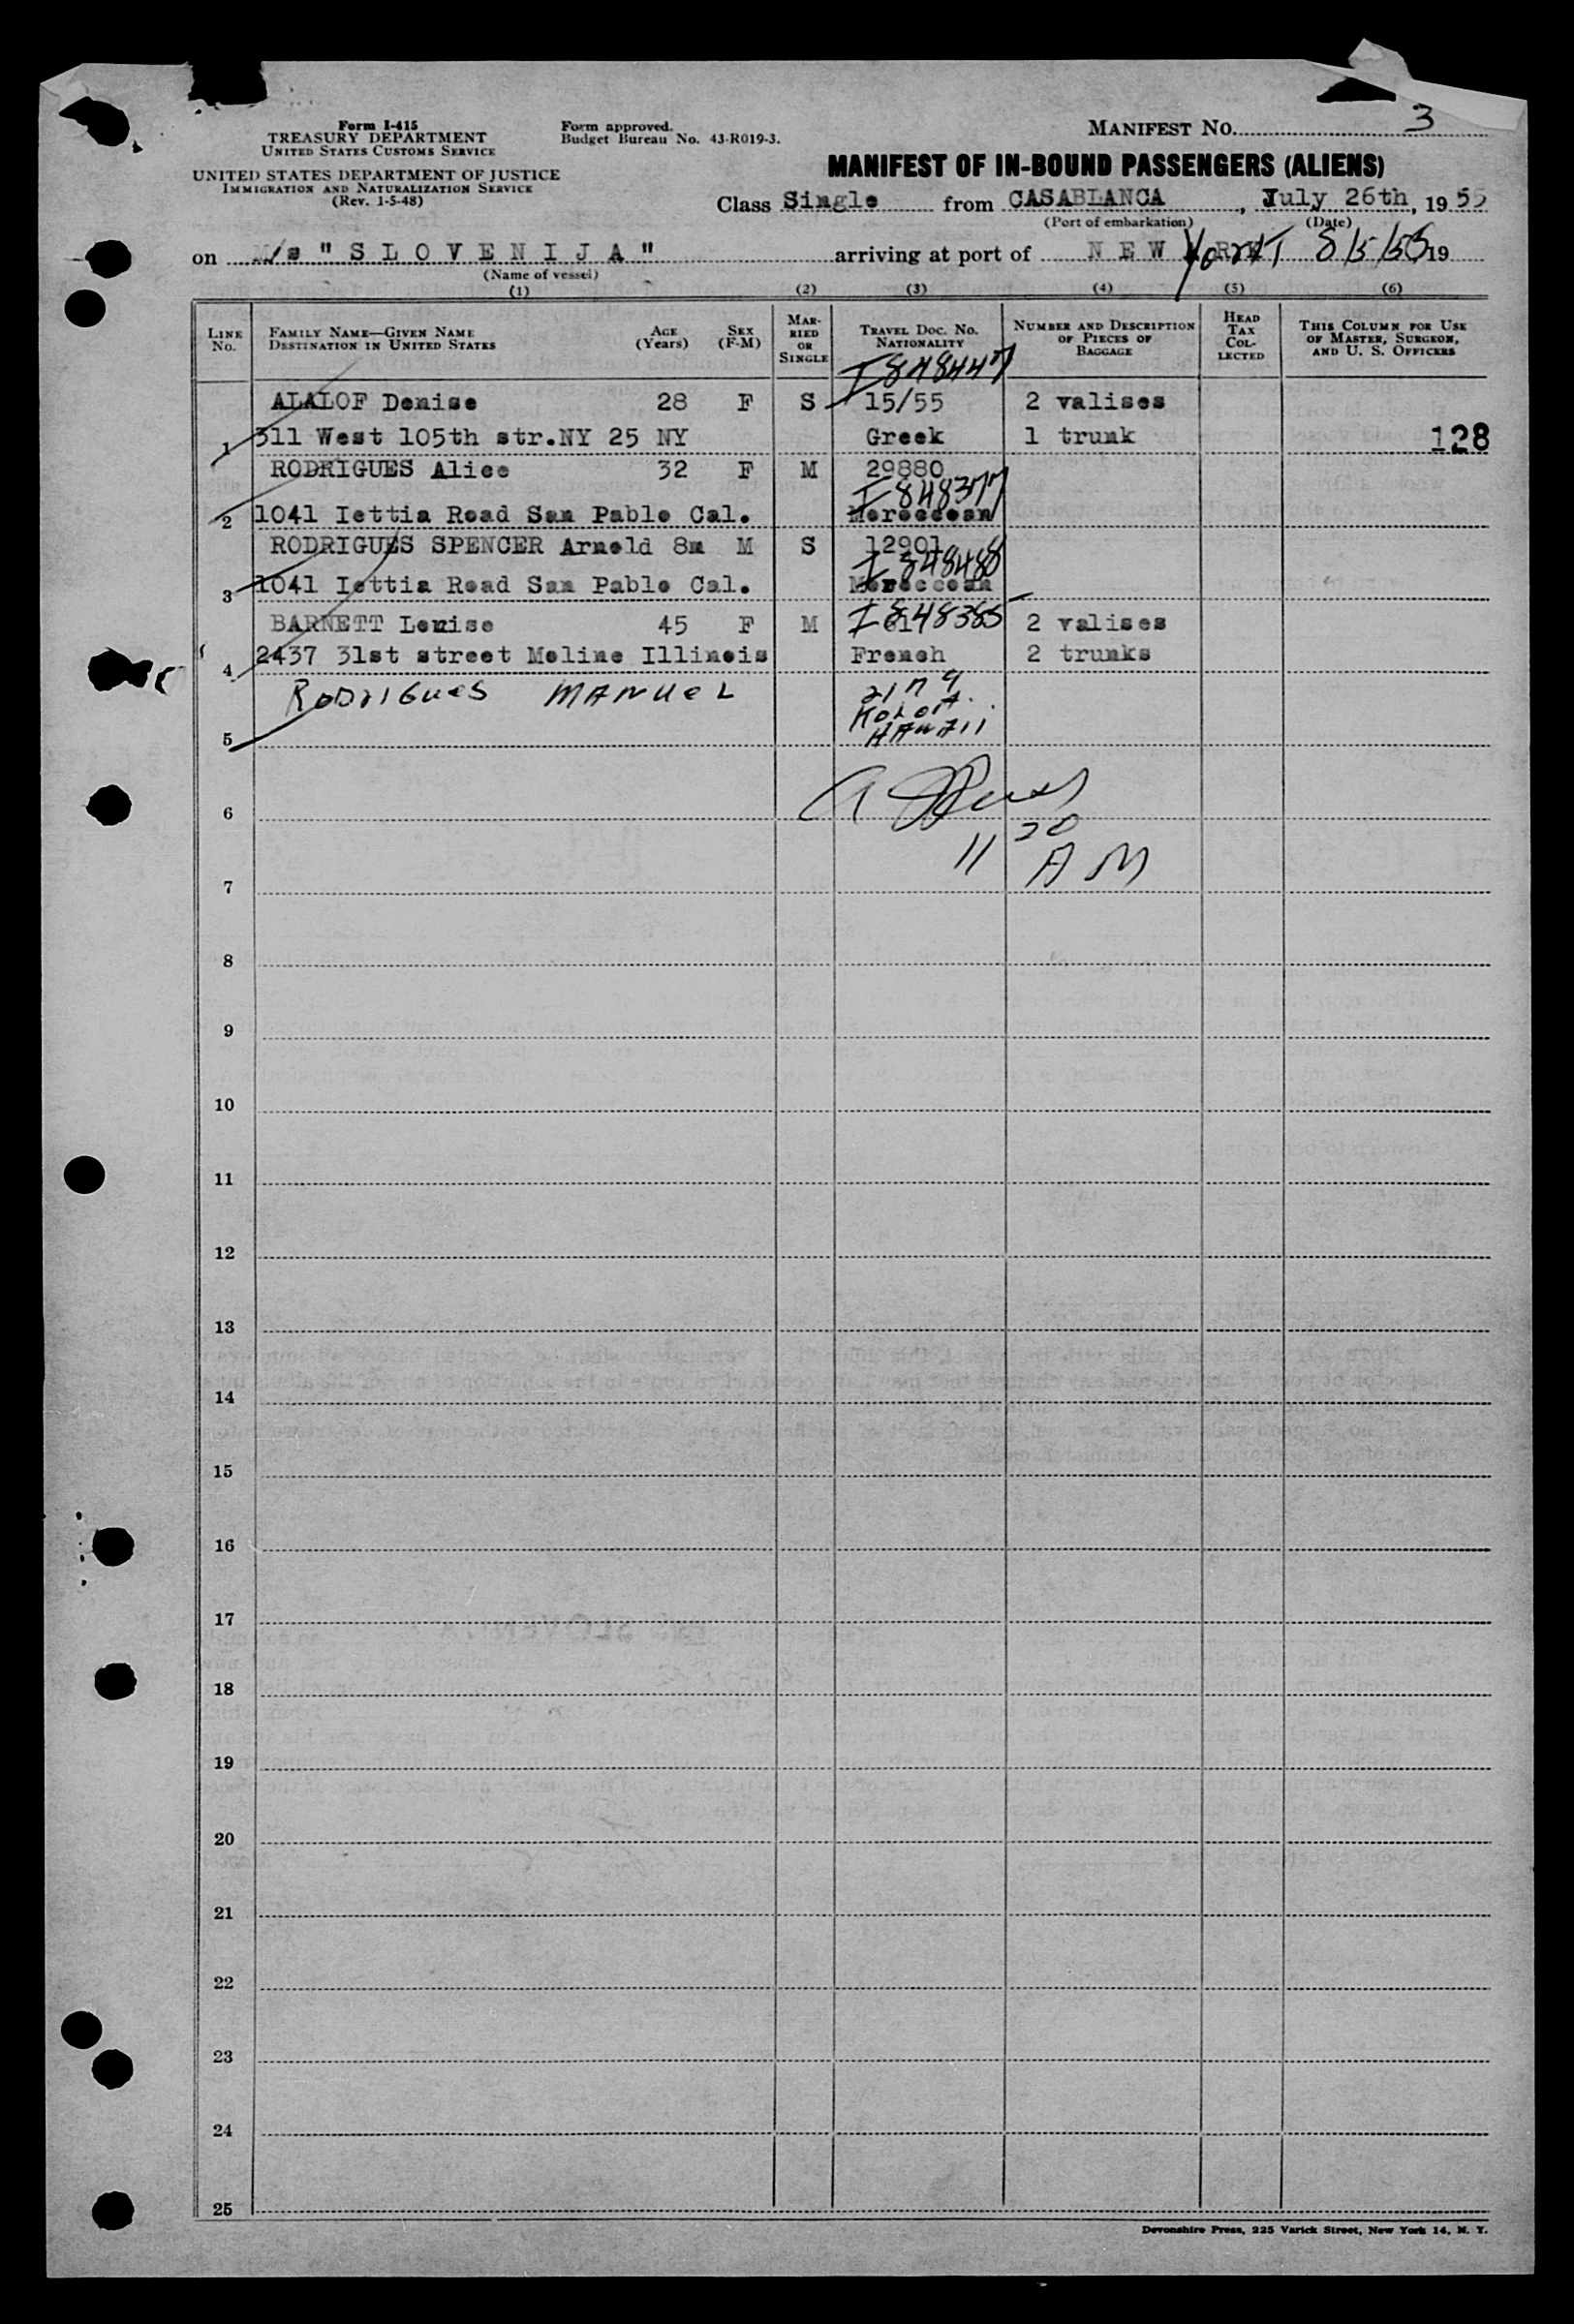 Form I-415
TREASURY DEPARTMENT
UNITED STATES CUSTOMS SERVICE
UNITED STATES DEPARTMENT OF JUSTICE
IMMIGRATION AND NATURALIZATION SERVICE
(Rev. 1-5-48)
Form approved.
Budget Bureau No. 43-R019-3.
MANIFEST NO. 3
MANIFEST OF IN-BOUND PASSENGERS (ALIENS)
Class Single from CASABLANCA, July 26th, 1955
(Port of embarkation) (Date)
on M/s "SLOVENIJA" arriving at port of NEW York 8/5/55 19
(Name of vessel)
(1) (2) (3) (4) (5) (6)
LINE NO.
FAMILY NAME—GIVEN NAME
DESTINATION IN UNITED STATES
AGE (Years)
SEX (F-M)
MARRIED OR SINGLE
TRAVEL DOC. NO.
NATIONALITY
NUMBER AND DESCRIPTION OF PIECES OF BAGGAGE
HEAD TAX COLLECTED
THIS COLUMN FOR USE OF MASTER, SURGEON, AND U. S. OFFICERS
I848447
ALALOF Denise 28 F S 15/55 2 valises
1 311 West 105th str.NY 25 NY Greek 1 trunk 128
RODRIGUES Alice 32 F M 29880
I-848377
2 1041 Iettia Road San Pablo Cal. Moroccean
RODRIGUES SPENCER Arnold 8m M S 12901
I848488
3 1041 Iettia Road San Pablo Cal. Moroccean
BARNETT Louise 45 F M I848385 2 valises
4 2437 31st street Moline Illinois French 2 trunks
RODRIGUES MANUEL 2179
5 HAWAII
6
11 20
7 AM
8
9
10
11
12
13
14
15
16
17
18
19
20
21
22
23
24
25
Devonshire Press, 225 Varick Street, New York 14, N. Y.